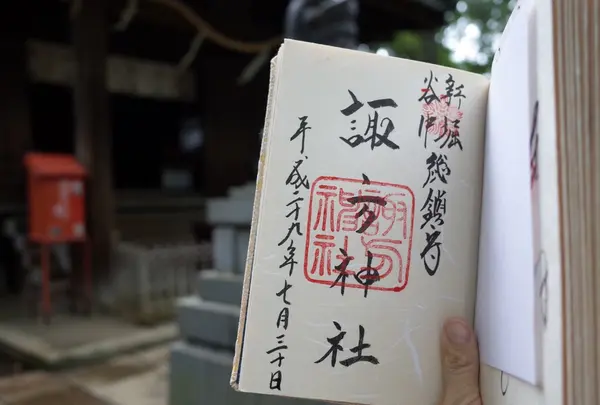 新堀
谷中
総鎮守
諏方神社
諏方神社
平成二十九年七月三十日